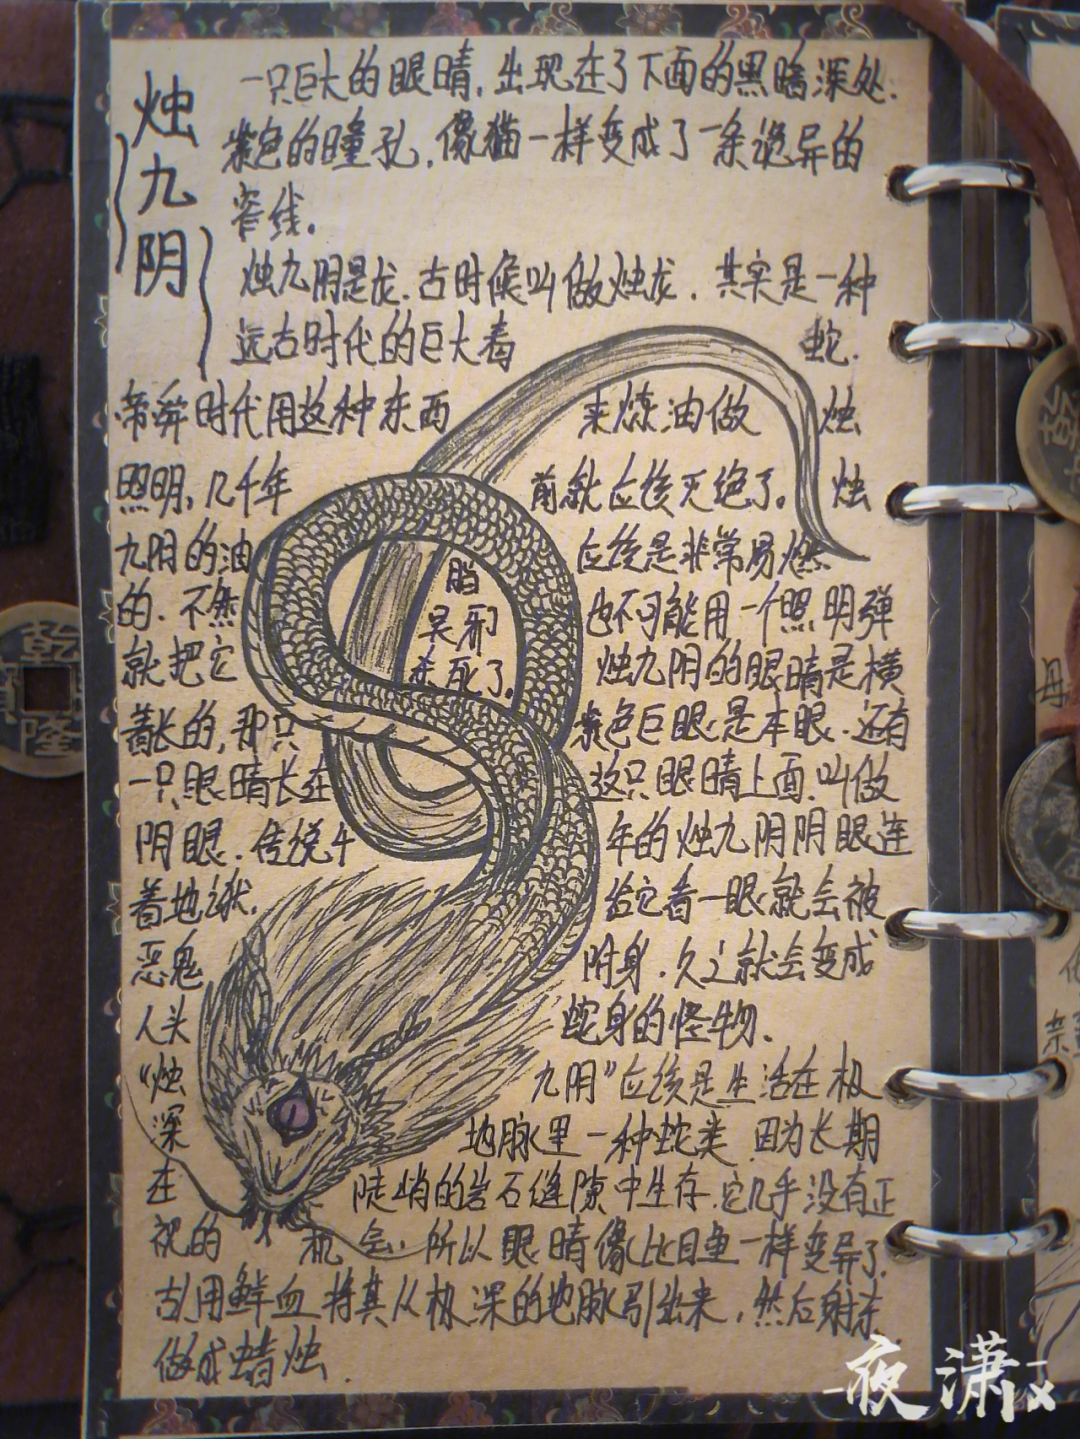 烛九阴
一只巨大的眼睛，出现在了下面的黑暗深处.
紫色的瞳孔，像猫一样变成了一条诡异的
窄线。
烛九阴是龙.古时候叫做烛龙，其实是一种
远古时代的巨大毒蛇.
帝舜时代用这种东西来炼油做烛
照明，几千年前就应该灭绝了。烛
九阴的油脂应该是非常易燃
的.不然也不可能用一个照明弹
就把它杀死了.烛九阴的眼睛是横
着长的,那只紫色巨眼是本眼.还有
一只眼睛长在这只眼睛上面.叫做
阴眼.传说千年的烛九阴阴眼连
着地狱.给它看一眼就会被
恶鬼附身.久之就会变成
人头蛇身的怪物.
“烛九阴”应该是生活在极
深地脉里一种蛇类.因为长期
在陡峭的岩石缝隙中生存.它几乎没有正
视的机会.所以眼睛像比目鱼一样变异了.
古人用鲜血将其从极深的地脉引出来，然后射杀.
做成蜡烛.
吴邪
乾
隆
乾
夜潇